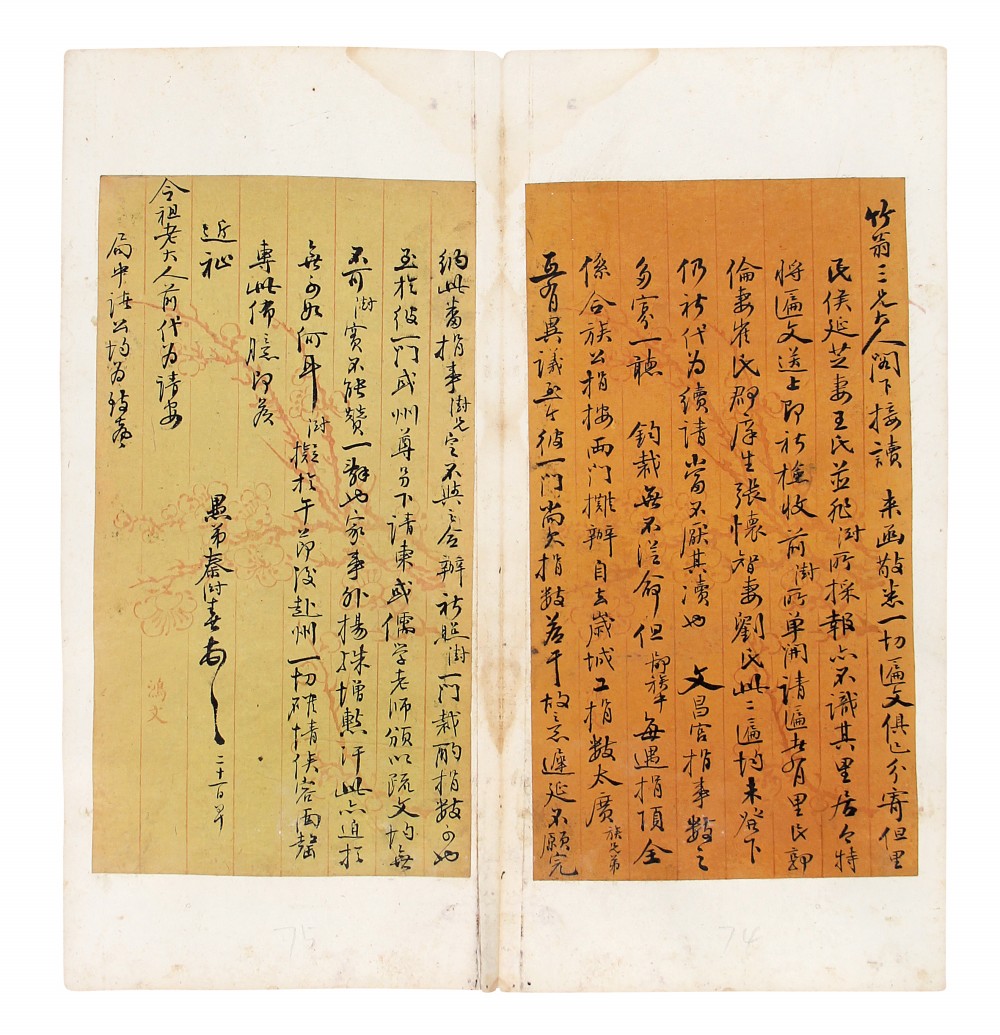 竹翁三兄大人閣下接讀　來函敬悉一切匾文俱已分寄但里
民侯延芝妻王氏並非澍所採報亦不識其里居今特
將匾文送上即祈檢收前澍所單開請匾者有里民郭
倫妻崔氏郡庠生張懷智妻劉氏此二匾均未發下
仍祈代為續請當不厭其瀆也　文昌宮捐事數之
多寡一聽　鈞裁無不從命但鄙族中每遇捐項全
係合族公捐按兩門攤辦自去歲城工捐數太廣族兄弟
互有異議至今彼一門尚欠捐數若干故意遲延不願完
納此番捐事澍先定不與之合辦祈照澍一門裁酌捐數可也
至於彼一門或州尊分下請柬或儒學老師頒以疏文均無
不可澍實不能贊一辭也家事外揚殊增慙汗此亦迫於
無可如何耳澍擬於午節後赴州一切確情俟容面罄
專此佈臆即候
近祉
令祖老大人前代為請安
局中諸公均為致意
愚弟秦澍春頓
二十一日早
鴻文
75
74